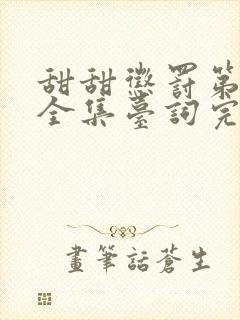 甜甜懲罰第
全集臺詞完
畫筆話蒼生